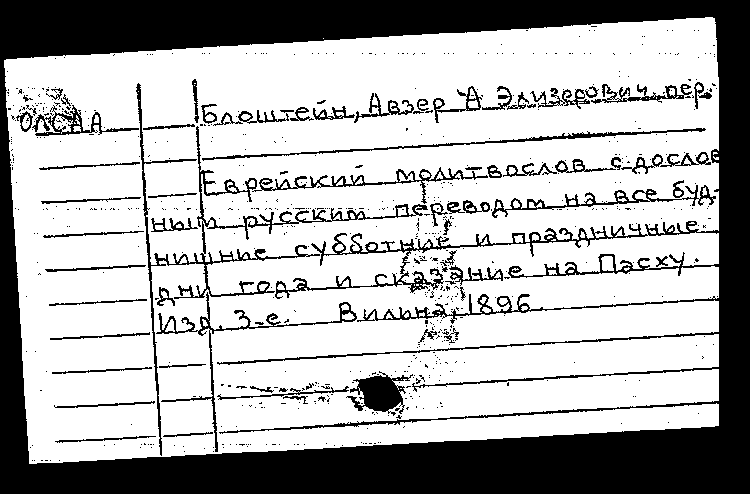 ОЛСАА
Блоштейн, Авзер А Элизерович, пер.
Еврейский молитвослов с дослов
ным русским переводом на все буд-
нишние субботные и праздничные.
дни года и сказание на Пасху.
Изд. 3-е. Вильна, 1896.